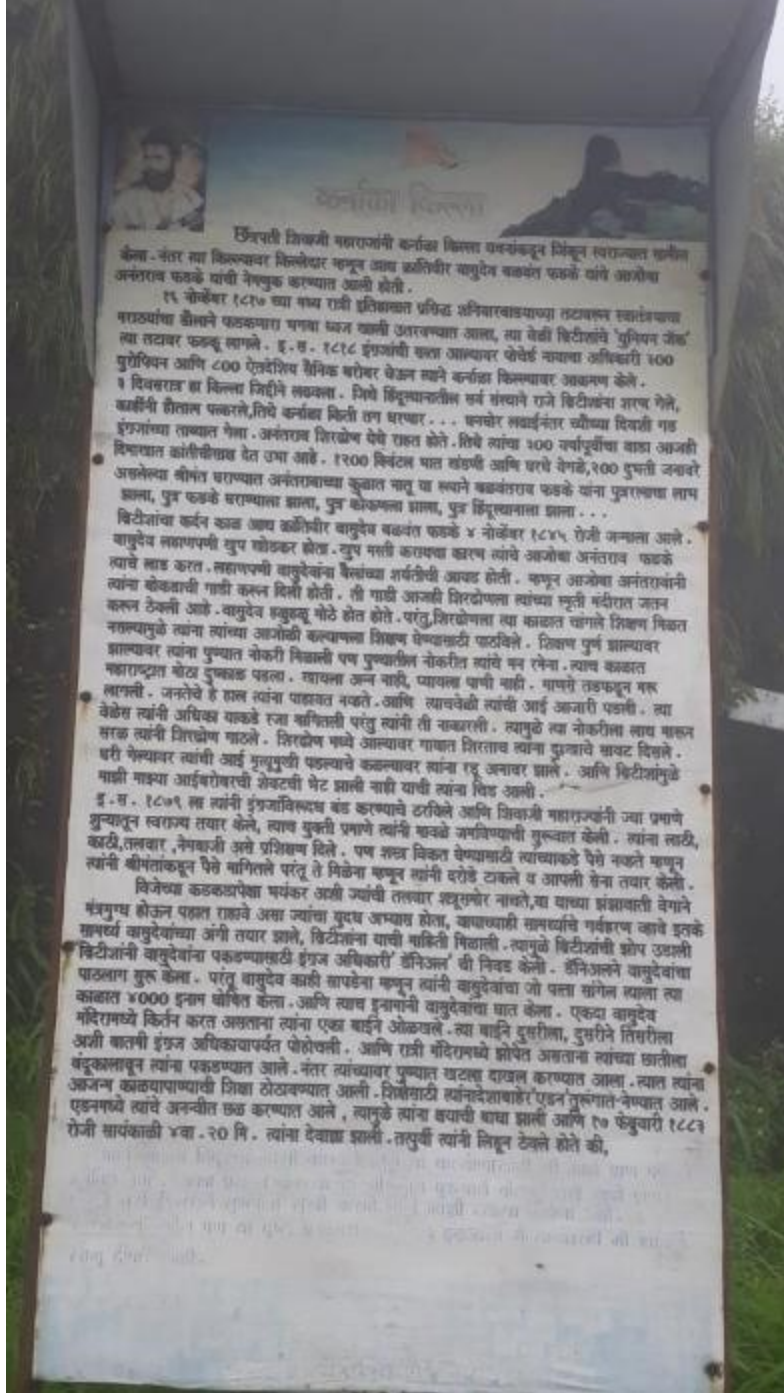 कर्नाळा किल्ला
छत्रपती शिवाजी महाराजांनी कर्नाळा किल्ला यवनांकडून जिंकून स्वराज्यात सामील
केला. नंतर त्या किल्ल्यावर किल्लेदार म्हणून आद्य क्रांतिवीर वासुदेव बळवंत फडके यांचे आजोबा
अनंतराव फडके यांची नेमणुक करण्यात आली होती.
१६ नोव्हेंबर १८१७ च्या मध्य रात्री इतिहासात प्रसिद्ध शनिवारवाड्याच्या तटावरून स्वातंत्र्याचा
मराठ्यांचा डौलाने फडकणारा भगवा ध्वज खाली उतरवण्यात आला, त्या वेळी ब्रिटीशांचे 'युनियन जॅक'
त्या तटावर फडकू लागले. इ.स. १८१८ इंग्रजांची सत्ता आल्यावर नावाचा अधिकारी ३००
युरोपियन आणि ८०० ऐतदेशिय सैनिक बरोबर घेऊन त्याने कर्नाळा किल्ल्यावर आक्रमण केले.
३ दिवसरात्र हा किल्ला जिद्दीने लढवला. जिथे हिंदूस्थानातील सर्व संस्थाने राजे ब्रिटीशांना शरण गेले,
काहींनी हौताल्म पत्करले, तिथे कर्नाळा किती तग धरणार... घनघोर लढाईनंतर चौथ्या दिवशी गड
इंग्रजांच्या ताब्यात गेला. अनंतराव शिरढोण येथे राहत होते. तिथे त्यांचा ३०० वर्षापूर्वीचा वाडा आजही
दिमाखात क्रांतीचीसाक्ष देत उभा आहे. १२०० क्विंटल भात खंडणी आणि घरचे वेगळे, २०० दुभती जनावरे
असलेल्या श्रीमंत घराण्यात अनंतरावाच्या कुळात नातू या रूपाने बळवंतराव फडके यांना पुत्ररत्नाचा लाभ
झाला, पुत्र फडके घराण्याला झाला, पुत्र कोकणला झाला, पुत्र हिंदूस्थानाला झाला...
ब्रिटीशांचा कर्दन काळ आद्य क्रांतिवीर वासुदेव बळवंत फडके ४ नोव्हेंबर १८४५ रोजी जन्माला आले.
वासुदेव लहाणपणी खुप खोडकर होता. खुप मस्ती करायचा कारण त्यांचे आजोबा अनंतराव फडके
त्याचे लाड करत. लहाणपणी वासुदेवांना बैलांच्या शर्यतीची आवड होती. म्हणून आजोबा अनंतरावांनी
त्यांना बोकडाची गाडी करून दिली होती. ती गाडी आजही शिरढोणला त्यांच्या स्मृती मंदीरात जतन
करून ठेवली आहे. वासुदेव हळुहळू मोठे होत होते. परंतु, शिरढोणला त्या काळात चांगले शिक्षण मिळत
नसल्यामुळे त्यांना त्यांच्या आजोळी कल्याणला शिक्षण घेण्यासाठी पाठविले. शिक्षण पुर्ण झाल्यावर
झाल्यावर त्यांना पुण्यात नोकरी मिळाली पण पुण्यातील नोकरीत त्यांचे मन रमेना. त्याच काळात
महाराष्ट्रात मोठा दुष्काळ पडला. खायला अन्न नाही, प्यायला पाणी नाही. माणसे तडफडून मरू
लागली. जनतेचे हे हाल त्यांना पाहावत नव्हते. आणि त्याचवेळी त्यांची आई आजारी पडली. त्या
वेळेस त्यांनी अधिका याकडे रजा मागितली परंतु त्यांनी ती नाकारली. त्यामुळे त्या नोकरीला लाथ मारून
सरळ त्यांनी शिरढोण गाठले. शिरढोण मध्ये आल्यावर गावात शिरताच त्यांना दुःखाचे सावट दिसले.
घरी गेल्यावर त्यांची आई मृत्यूमुखी पडल्याचे कळल्यावर त्यांना रडू अनावर झाले. आणि ब्रिटीशांमुळे
माझी माझ्या आईबरोबरची शेवटची भेट झाली नाही याची त्यांना चिड आली.
इ.स. १८७९ ला त्यांनी इंग्रजांविरूध्द बंड करण्याचे ठरविले आणि शिवाजी महाराज्यांनी ज्या प्रमाणे
शुन्यातून स्वराज्य तयार केले, त्याच युक्ती प्रमाणे त्यांनी मावळे जमविण्याची सुरूवात केली. त्यांना लाठी,
काठी, तलवार, नेमबाजी असे प्रशिक्षण दिले. पण शस्त्र विकत घेण्यासाठी त्याच्याकडे पैसे नव्हते म्हणून
त्यांनी श्रीमंताकडून पैसे मागितले परंतू ते मिळेना म्हणून त्यांनी दरोडे टाकले व आपली सेना तयार केली.
विजेच्या कडकडापेक्षा भयंकर अशी ज्यांची तलवार शत्रूसमोर नाचते, वा याच्या झंझावाती वेगाने
मंत्रमुग्ध होऊन पहात राहावे असा ज्यांचा युदध अभ्यास होता, सामर्थ्याचे गर्वहरण व्हावे इतके
सामर्थ्य वासुदेवांच्या अंगी तयार झाले, ब्रिटीशांना याची माहिती मिळाली. त्यामुळे ब्रिटीशांची झोप उडाली
ब्रिटीशांनी वासुदेवांना पकडण्यासाठी इंग्रज अधिकारी' डॅनिअल' ची निवड केली. डॅनिअलने वासुदेवांचा
पाठलाग सुरू केला. परंतू वासुदेव काही सापडेना म्हणून त्यांनी वासुदेवांचा जो पत्ता सांगेल त्याला त्या
काळात ४००० इनाम घोषित केला. आणि त्याच इनामांनी वासुदेवांचा घात केला. एकदा वासुदेव
मंदिरामध्ये किर्तन करत असताना त्यांना एका बाईने ओळखले. त्या बाईने दुसरीला, दुसरीने तिसरीला
अशी बातमी इंग्रज अधिकायापर्यंत पोहोचली. आणि रात्री मंदिरामध्ये झोपेत असताना त्यांच्या छातीला
बंदूकालावून त्यांना पकडण्यात आले. नंतर त्यांच्यावर पुण्यात खटला दाखल करण्यात आला. त्यात त्यांना
आजन्म काळयापाण्याची शिक्षा ठोठावण्यात आली. शिक्षेसाठी त्यांनादेशाबाहेर 'एडन' तुरूगात नेण्यात आले.
एडनमध्ये त्यांचे अनन्वीत छळ करण्यात आले, त्यामुळे त्यांना क्षयाची बाधा झाली आणि १७ फेब्रुवारी १८८३
रोजी सायंकाळी ४वा. २० मि. त्यांना देवाज्ञा झाली. तत्पुर्वी त्यांनी लिहून ठेवले होते की,